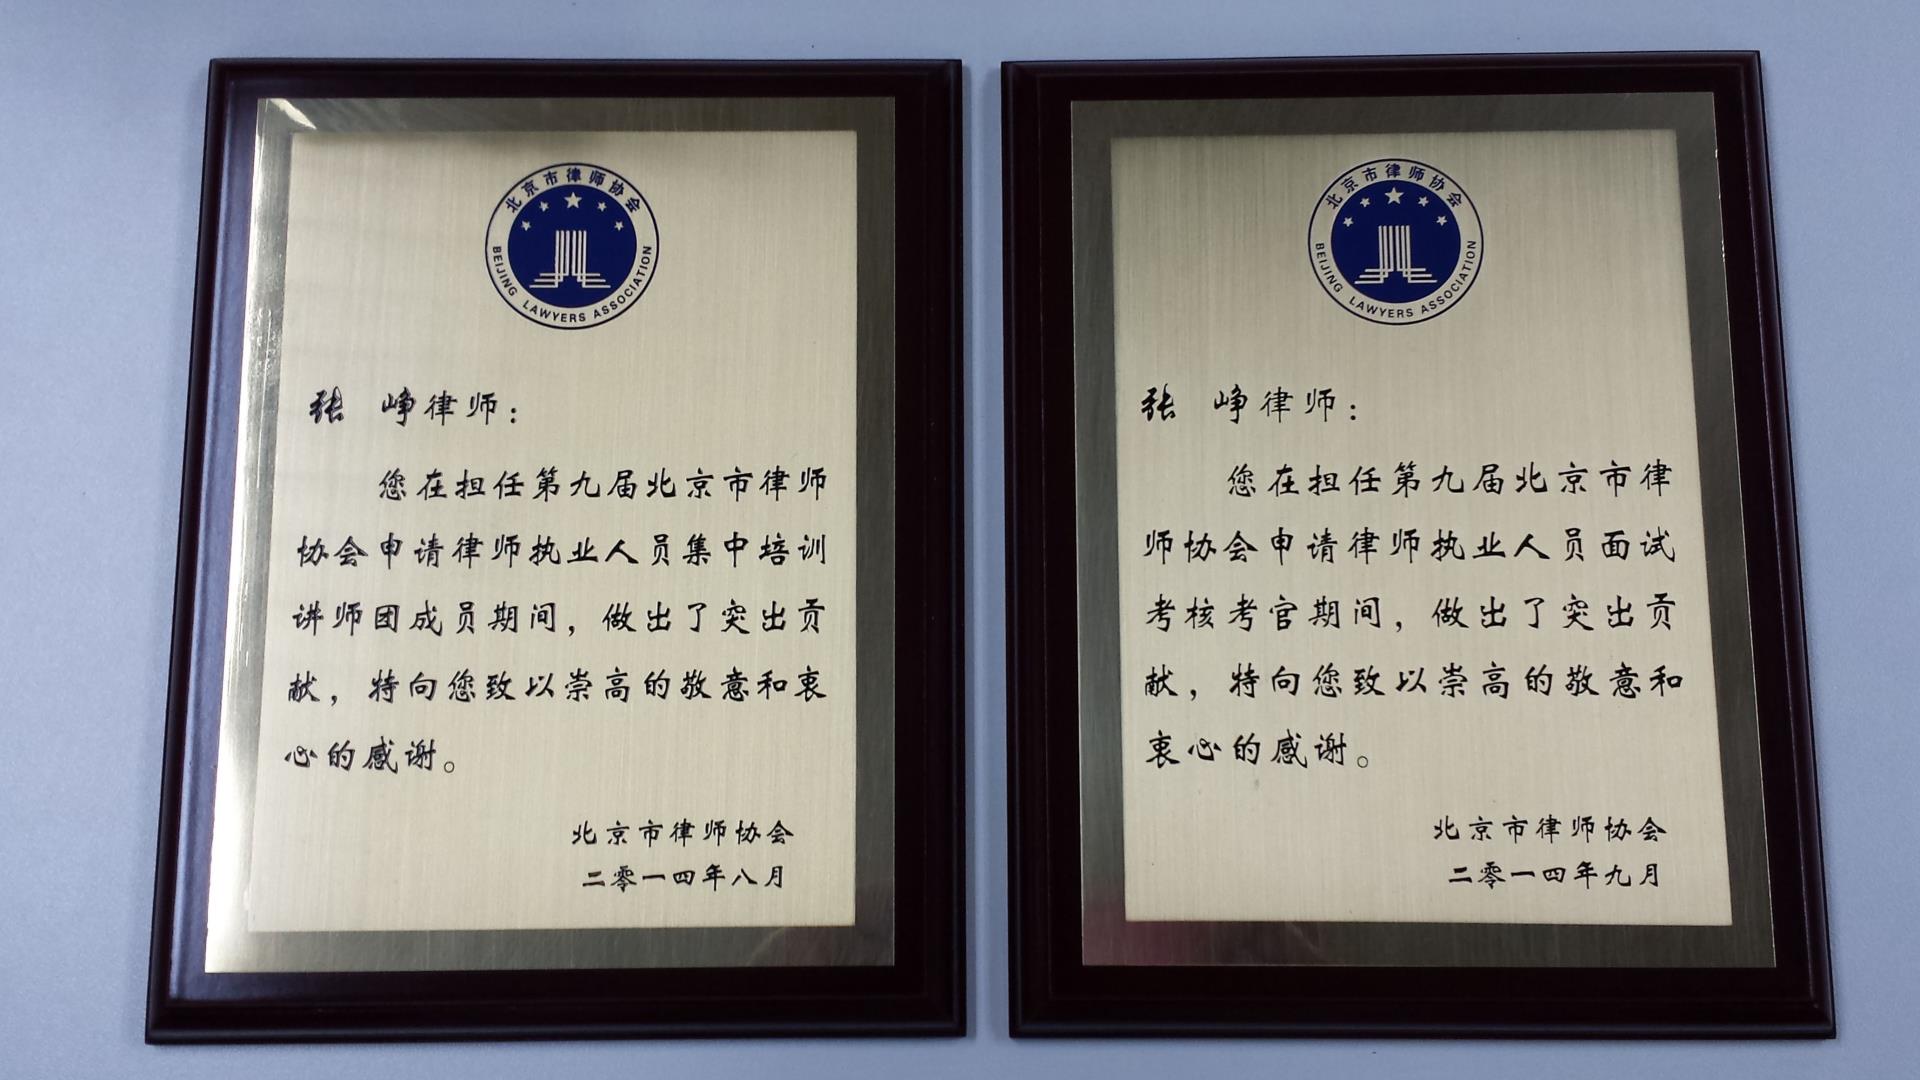 北京市律师协会
BEIJING LAWYERS ASSOCIATION
张 峥律师：
您在担任第九届北京市律师
协会申请律师执业人员集中培训
讲师团成员期间，做出了突出贡
献，特向您致以崇高的敬意和衷
心的感谢。
北京市律师协会
二零一四年八月
北京市律师协会
BEIJING LAWYERS ASSOCIATION
张 峥律师：
您在担任第九届北京市律
师协会申请律师执业人员面试
考核考官期间，做出了突出贡
献，特向您致以崇高的敬意和
衷心的感谢。
北京市律师协会
二零一四年九月